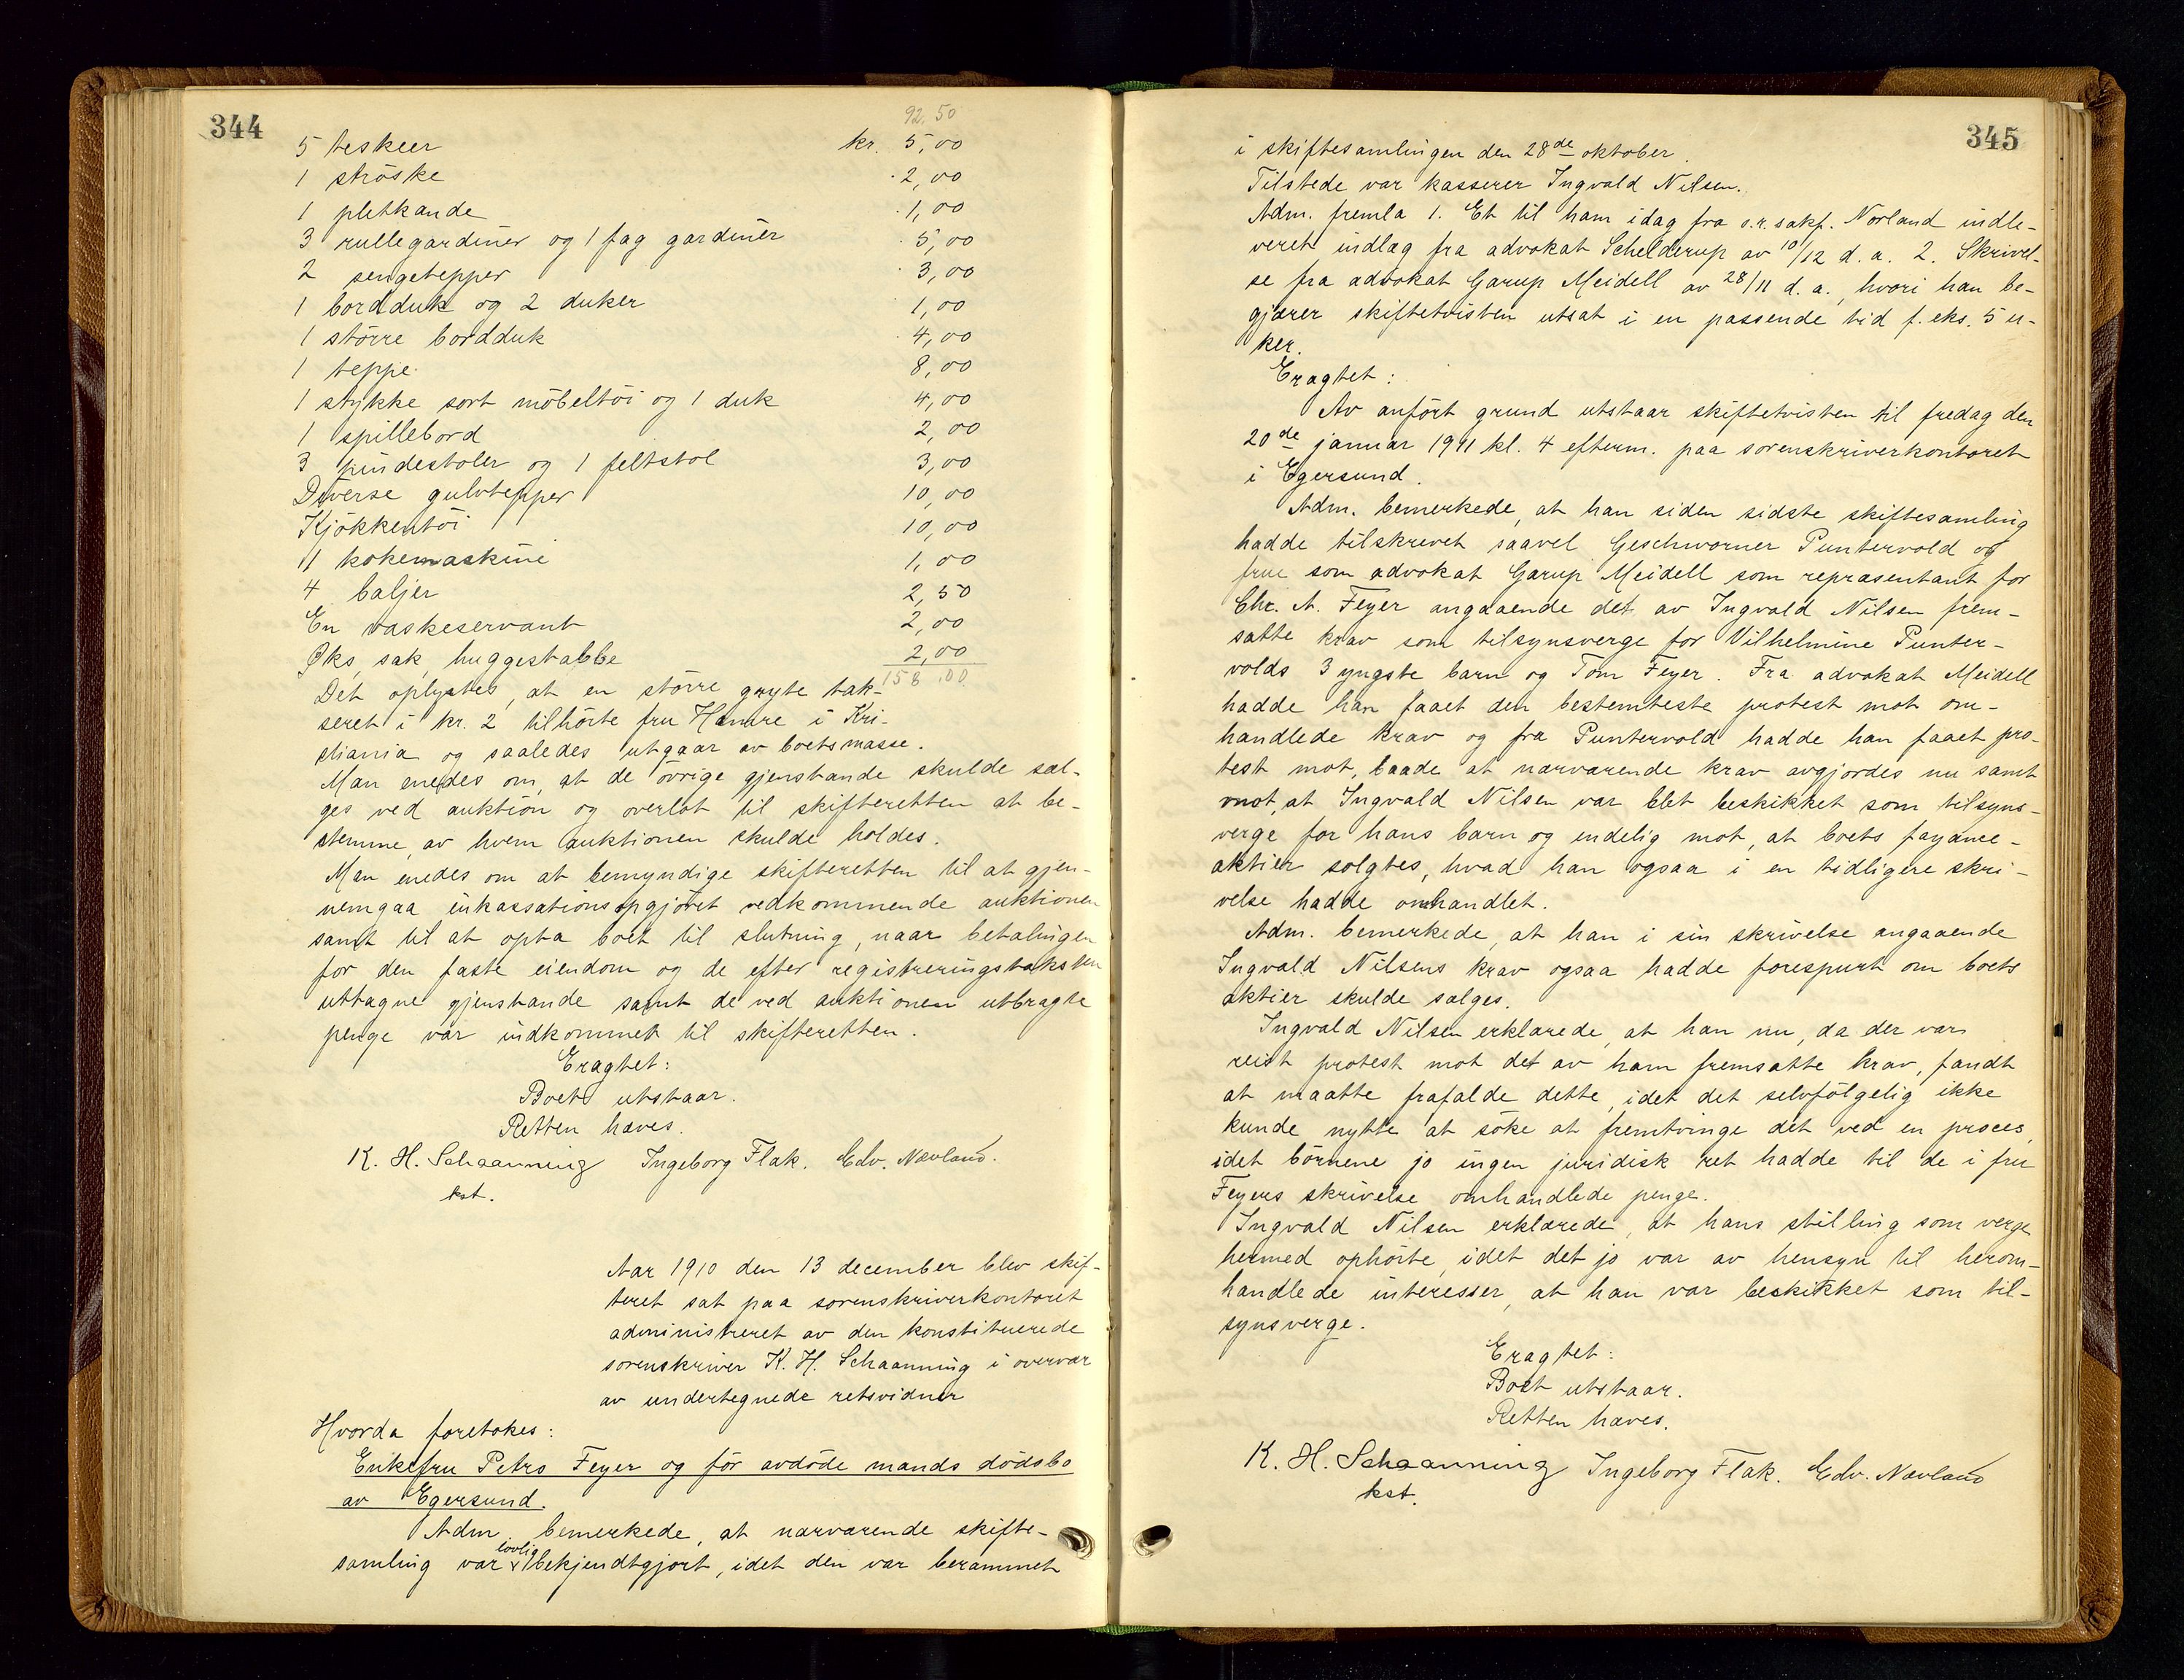 344
92,50
5 teskeer kr. 5,00
1 ströske 2,00
1 pletkande 1,00
3 rullegardiner og 1 fag gardiner 5,00
2 sengetepper 3,00
1 bordduk og 2 duker 1,00
1 större bordduk 4,00
1 teppe 8,00
1 stykke sort möbeltöi og 1 duk 4,00
1 spillebord 2,00
3 pindestoler og 1 feltstol 3,00
Diverse gulvtepper 10,00
Kjökkentöi 10,00
1 kokemaskine 1,00
4 baljer 2,50
En vaskeservant 2,00
Øks, sak, huggestabbe 2,00
158,00
Det oplystes, at en större gryte tak-
seret i kr. 2 tilhörte fru Hamre i Kri-
stiania og saaledes utgaar av boets masse.
Man enedes om, at de övrige gjenstande skulde sæl-
ges ved auktion og overlot til skifteretten at be-
stemme, av hvem auktionen skulde holdes.
Man enedes om at bemyndige skifteretten til at gjen-
nemgaa inkassationsopgjöret vedkommende auktionen
samt til at opta boet til slutning, naar betalingen
for den faste eiendom og de efter registreringstaksten
uttagne gjenstande samt de ved auktionen utbragte
penge var indkommet til skifteretten.
Eragtet:
Boet utstaar.
Retten hæves.
K. H. Schaanning Ingeborg Flak. Edv. Nævland.
kst.
Aar 1910 den 13 december blev skif-
teret sat paa sorenskriverkontoret
administreret av den konstituerede
sorenskriver K. H. Schaanning i overvær
av undertegnede retsvidner
Hvorda foretokes:
Enkefru Petra Feyer og för avdöde mands dödsbo
av Egersund.
Adm. bemerkede, at nærværende skifte-
lovlig
samling var bekjendtgjort, idet den var berammet
345
i skiftesamlingen den 28de oktober.
Tilstede var kasserer Ingvald Nilsen.
Adm. fremla 1. Et til ham idag fra o.r.sakf. Norland indle-
veret indlæg fra advokat Schelderup av 10/12 d.a. 2. Skrivel-
se fra advokat Garup Meidell av 28/11 d.a., hvori han be-
gjærer skiftetvisten utsat i en passende tid f. eks. 5 u-
ker.
Eragtet:
Av anfört grund utstaar skiftetvisten til fredag den
20de januar 1911 kl. 4 efterm. paa sorenskriverkontoret
i Egersund.
Adm. bemerkede, at han siden sidste skiftesamling
hadde tilskrevet saavel Geschworner Puntervold og
frue som advokat Garup Meidell som repræsentant for
Chr. A. Feyer angaaende det av Ingvald Nilsen frem-
satte krav som tilsynsverge for Vilhelmine Punter-
volds 3 yngste barn og Tom Feyer. Fra advokat Meidell
hadde han faaet den bestemteste protest mot om-
handlede krav og fra Puntervold hadde han faaet pro-
test mot, baade at nærværende krav avgjordes nu samt
mot, at Ingvald Nilsen var blet beskikket som tilsyns-
verge for hans barn og endelig mot, at boets fayance-
aktier solgtes, hvad han ogsaa i en tidligere skri-
velse hadde omhandlet.
Adm. bemerkede, at han i sin skrivelse angaaende
Ingvald Nilsens krav ogsaa hadde forespurt om boets
aktier skulde sælges.
Ingvald Nilsen erklærede, at han nu, da der var
reist protest mot det av ham fremsatte krav, fandt
at maatte frafalde dette, idet det selvfölgelig ikke
kunde nytte at söke at fremtvinge det ved en proces,
idet börnene jo ingen juridisk ret hadde til de i fru
Feyers skrivelse omhandlede penge.
Ingvald Nilsen erklærede, at hans stilling som verge
hermed ophörte, idet det jo var av hensyn til herom-
handlede interesser, at han var beskikket som til-
synsverge.
Eragtet:
Boet utstaar.
Retten hæves.
K. H. Schaanning Ingeborg Flak. Edv. Nævland
kst.